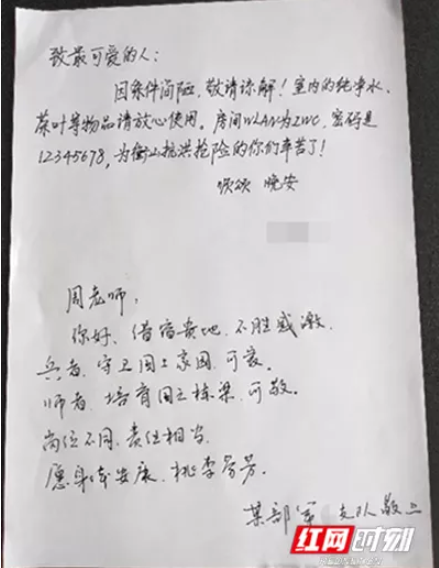 致最可爱的人：
因条件简陋，敬请谅解！室内的纯净水、
茶叶等物品请放心使用。房间WLAN为ZWC，密码是
12345678，为衡山抗洪抢险的你们辛苦了！
顺颂 晚安
周老师，
你好、借宿贵地，不胜感激，
兵者、守卫国土家园，可哀。
师者、培育国之栋梁，可敬。
岗位不同，责任相当，
愿身体安康、桃李芬芳。
某部军 支队敬上
红网时刻